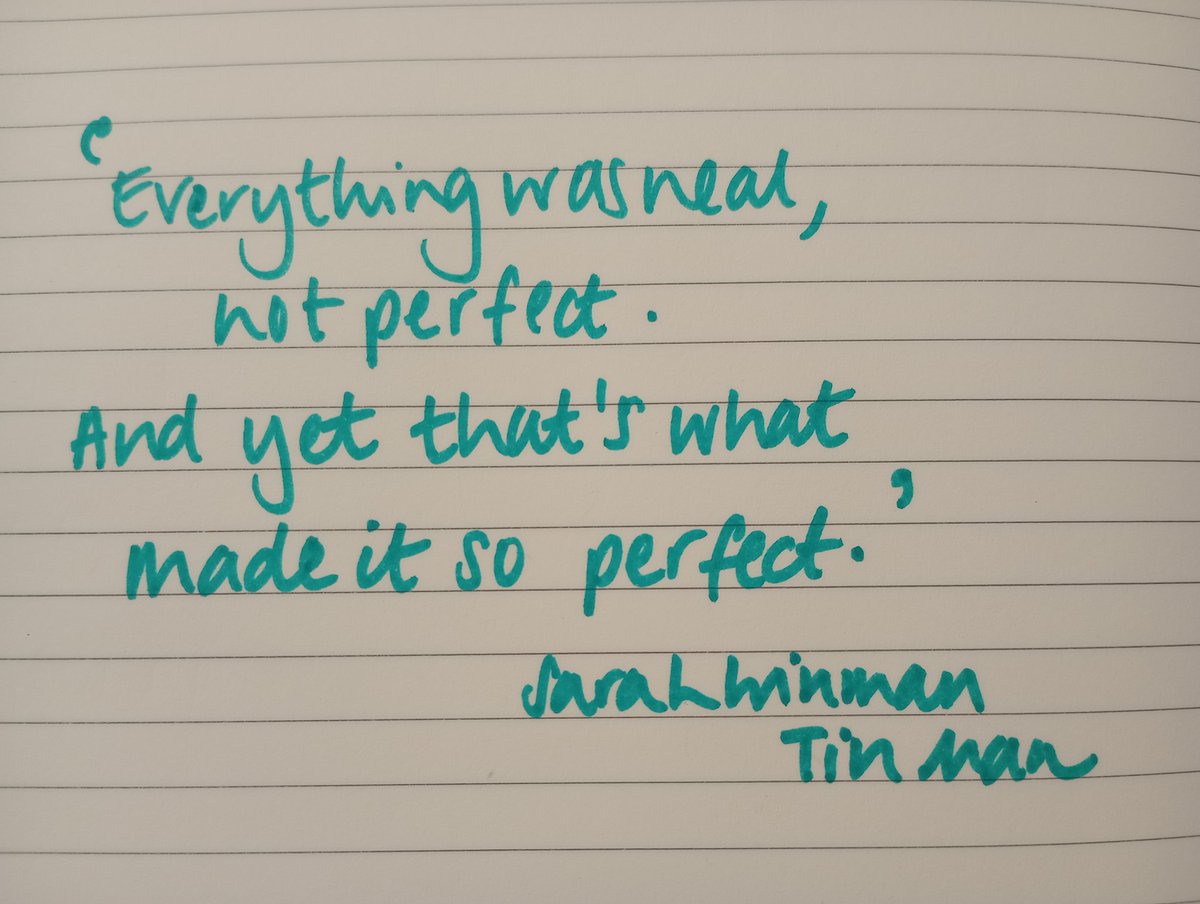 'Everything was neat,
not perfect.
And yet that's what
made it so perfect.'
Sarah Winman
Tin Man